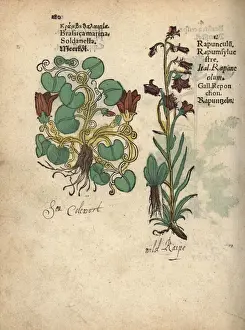 Κράμβη θαλαγγία
Brassica marina.
Soldanella.
Meerkol.
Rapunculus,
Rapum sylue
stre.
Ital. Rapunc
olum.
Gall. Repon
chon.
Rapuntzeln.
Sea Colewort
wild Rape